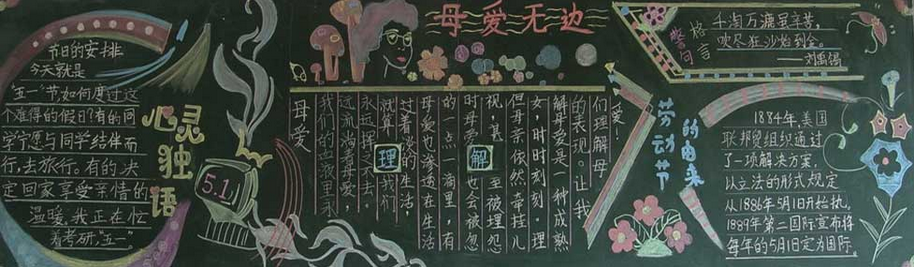 节日的安排
今天就是
"五一"节,如何度过这
个难得的假日?有的同
学宁愿与同学结伴而
行,去旅行。有的决
定回家享受亲情的
温暖,我正在忙
着考研,"五一"
心灵
独
语
5.1
母爱无边
爱!
们理解母
的表现。让我
解母爱是一种成熟
女,时时刻刻。理
但母亲依然牵挂儿
视,甚至被埋怨
时母爱也会被忽
的一点一滴里,有
母爱也渗透在生活
过着淡的生活,
就算
永远挥不去。
远流淌着母爱,
我们的血液里永
母爱
理
解
警句
格言
千淘万漉虽辛苦,
吹尽狂沙始到金。
——刘禹锡
劳动节
的由来
1884年,美国
联邦贸组织通过
了一项解决方案,
以立法的形式规定
从1886年5月1日开始执。
1889年第二国际宣布将
每年的5月1日定为国际